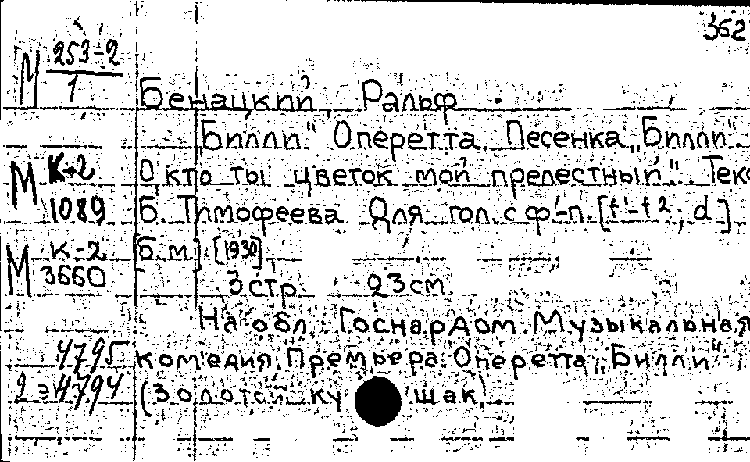 352
М 253-2
1
Бенацкий, Ральф.
"Билли" Оперетта. Песенка „Билли"
М К-2
1089
О кто ты цветок мой прелестный". Текс
Б. Тимофеева Для гол. с ф-п. [f¹-f²; d]
М К-2
3660
[Б.м]. [1930]
3 стр. 23 см.
На обл.: Госнардом. Музыкальная
4795
комедия. Премьера. Оперетта „Билли"
2э 4794
(Золотой ку шак)